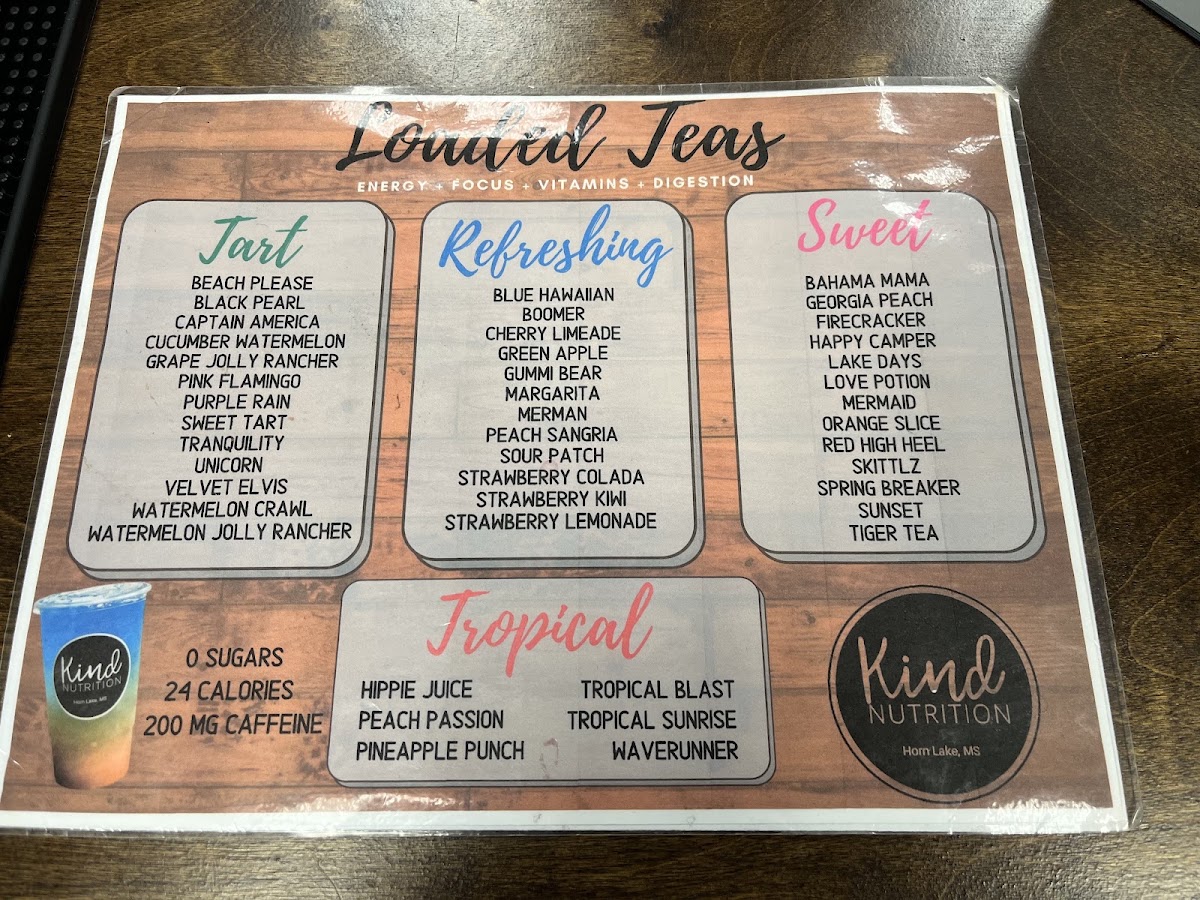 Loaded Teas
ENERGY + FOCUS + VITAMINS + DIGESTION
Tart
BEACH PLEASE
BLACK PEARL
CAPTAIN AMERICA
CUCUMBER WATERMELON
GRAPE JOLLY RANCHER
PINK FLAMINGO
PURPLE RAIN
SWEET TART
TRANQUILITY
UNICORN
VELVET ELVIS
WATERMELON CRAWL
WATERMELON JOLLY RANCHER
Refreshing
BLUE HAWAIIAN
BOOMER
CHERRY LIMEADE
GREEN APPLE
GUMMI BEAR
MARGARITA
MERMAN
PEACH SANGRIA
SOUR PATCH
STRAWBERRY COLADA
STRAWBERRY KIWI
STRAWBERRY LEMONADE
Sweet
BAHAMA MAMA
GEORGIA PEACH
FIRECRACKER
HAPPY CAMPER
LAKE DAYS
LOVE POTION
MERMAID
ORANGE SLICE
RED HIGH HEEL
SKITTLZ
SPRING BREAKER
SUNSET
TIGER TEA
Kind
NUTRITION
Horn Lake, MS
0 SUGARS
24 CALORIES
200 MG CAFFEINE
Tropical
HIPPIE JUICE
PEACH PASSION
PINEAPPLE PUNCH
TROPICAL BLAST
TROPICAL SUNRISE
WAVERUNNER
Kind
NUTRITION
Horn Lake, MS